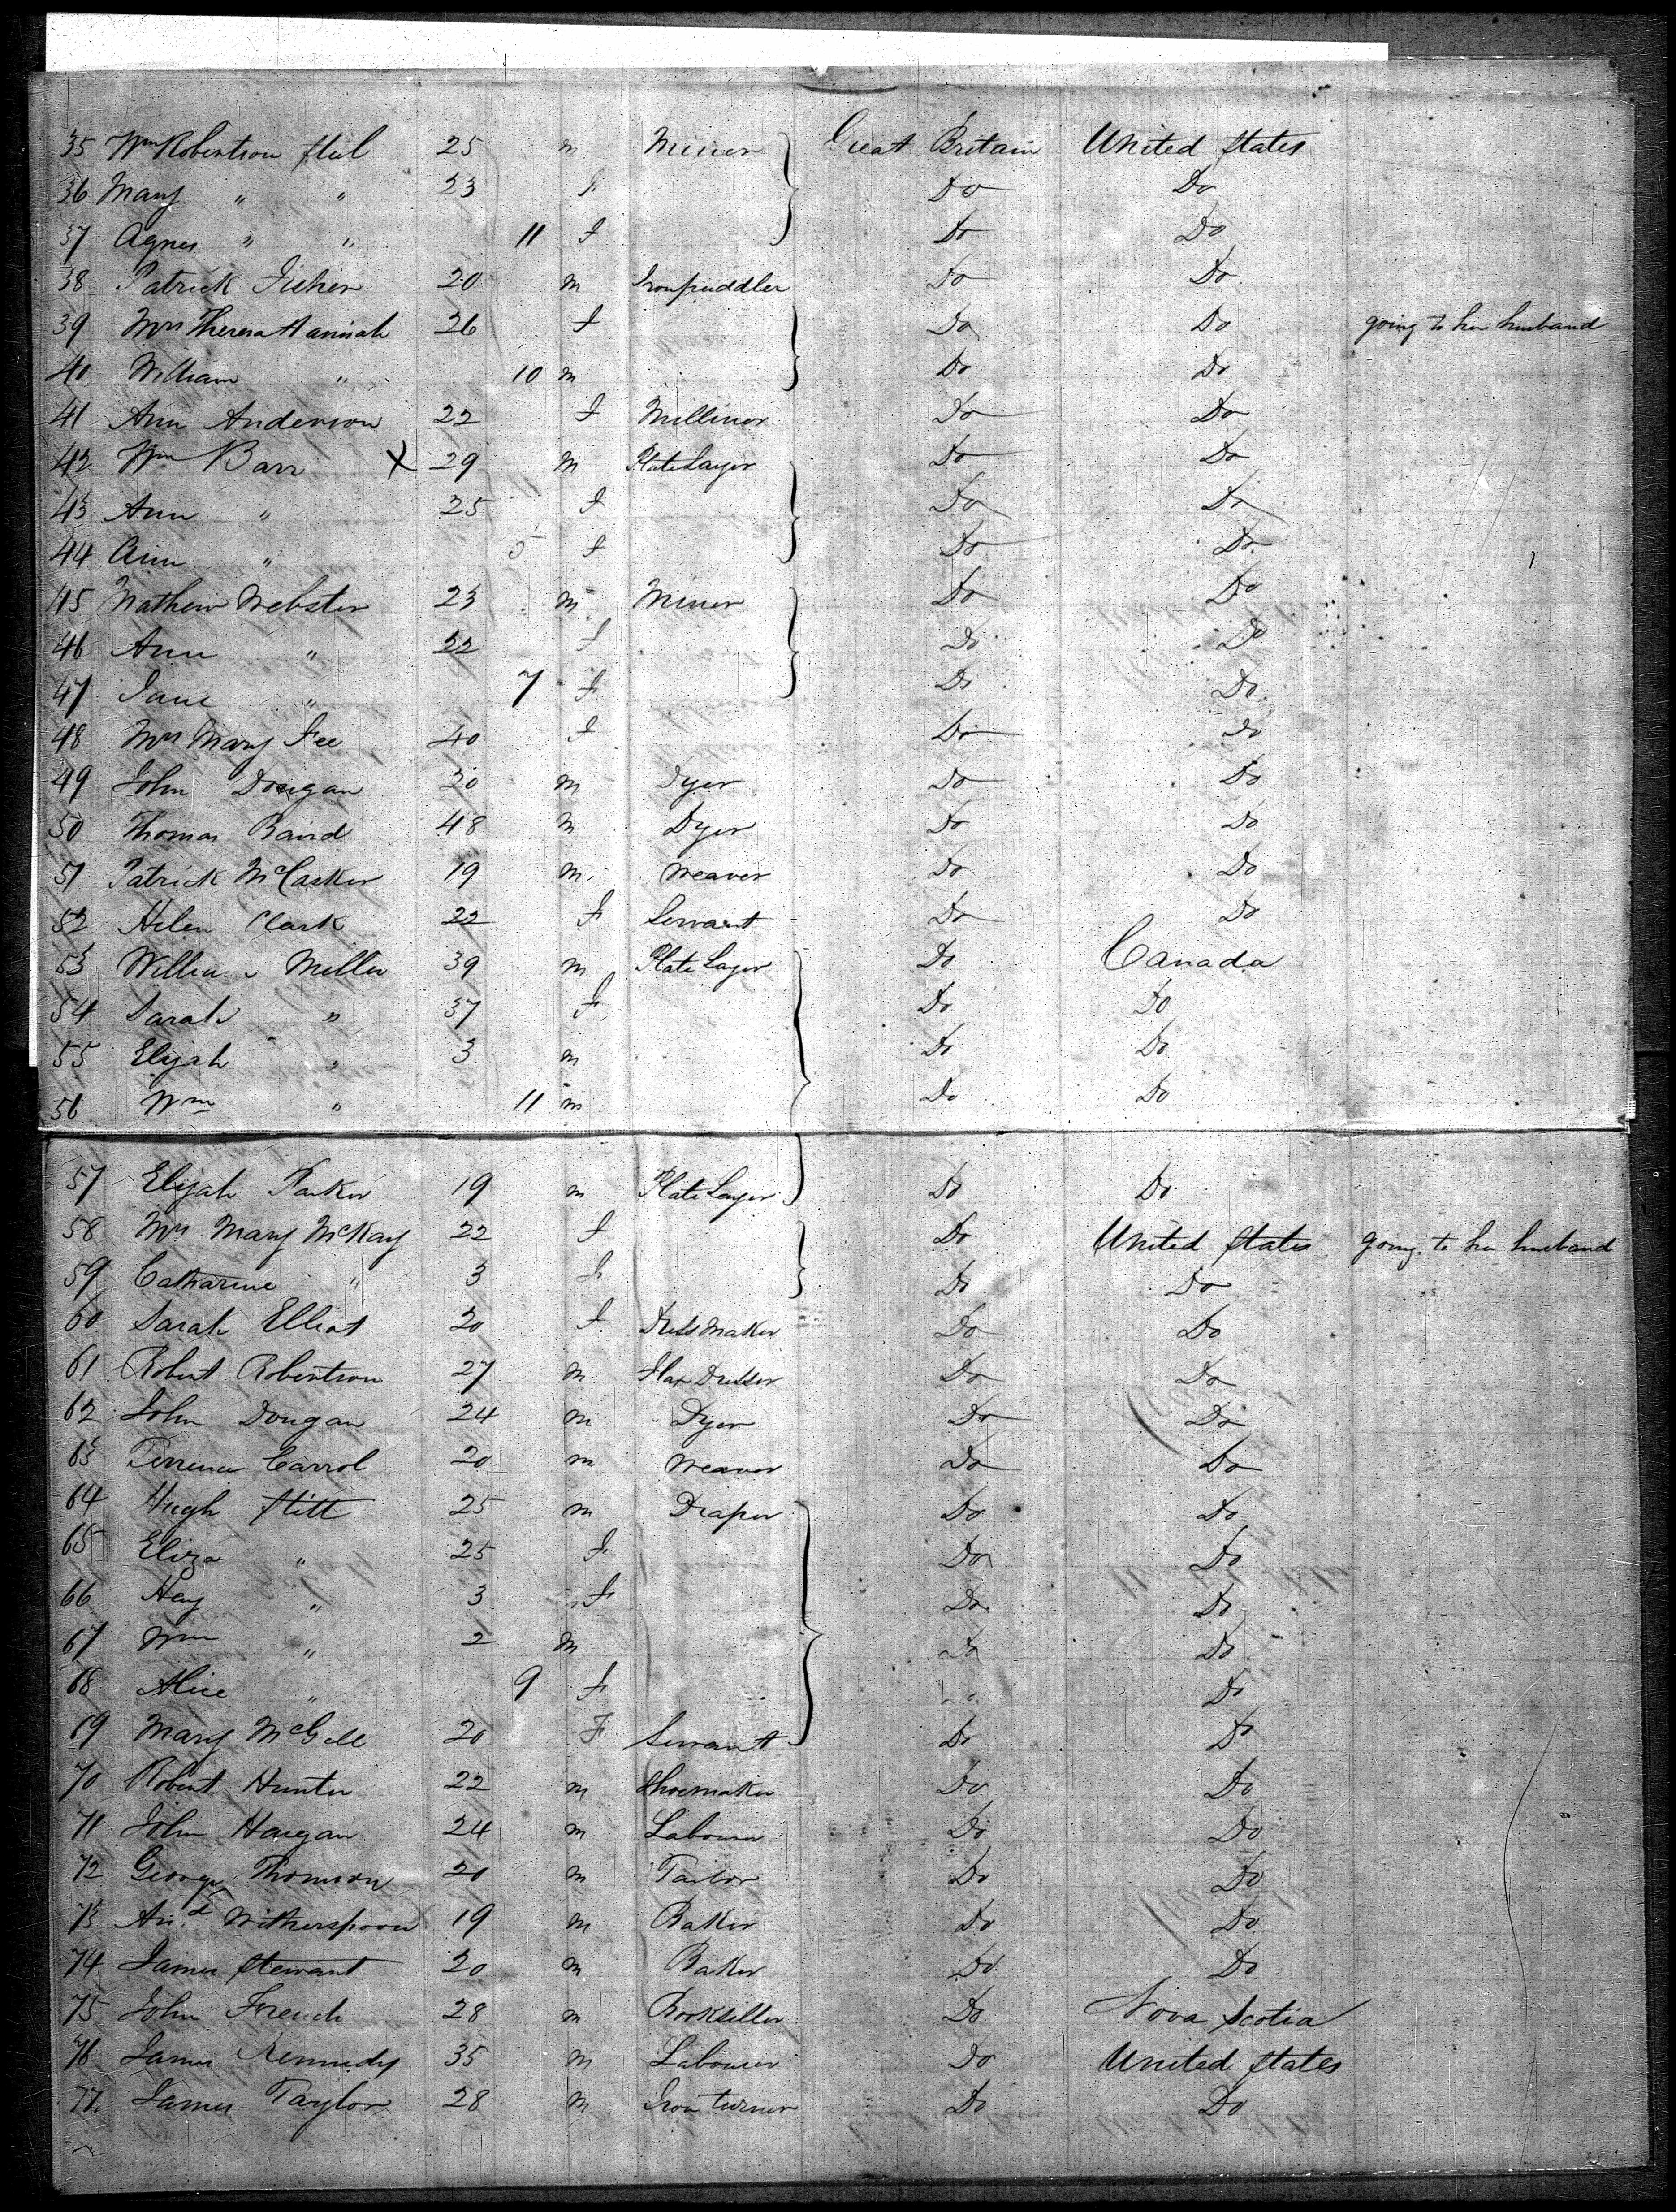 35 Wm Robertson Stul 25 m Miner Great Britain United States
36 Mary " " 23 F Do Do
37 Agnes " " 11 F Do Do
38 Patrick Fisher 20 m Ironpuddler Do Do
39 Mrs Theresa Hannah 26 F Do Do going to her husband
40 William " 10 m Do Do
41 Ann Anderson 22 F Milliner Do Do
42 Wm Barr X 29 m Plate Layer Do Do
43 Ann " 25 F Do Do
44 Ann " 5 F Do Do
45 Mathew Webster 23 m Miner Do Do
46 Ann " 22 F Do Do
47 Jane " 7 F Do Do
48 Mrs Mary Fee 40 F Do Do
49 John Dougan 30 m Dyer Do Do
50 Thomas Baird 48 m Dyer Do Do
51 Patrick McCasker 19 m Weaver Do Do
52 Helen Clark 22 F Servant Do Do
53 William Miller 39 m Plate Layer Do Canada
54 Sarah " 37 F Do Do
55 Elijah " 3 m Do Do
56 Wm " 11 m Do Do
57 Elijah Parker 19 m Plate Layer Do Do
58 Mrs Mary McKay 22 F Do United States going to her husband
59 Catharine " 3 F Do Do
60 Sarah Elliot 20 F Dress Maker Do Do
61 Robert Robertson 27 m Flax Dresser Do Do
62 John Dougan 24 m Dyer Do Do
63 Terrence Carrol 20 m Weaver Do Do
64 Hugh Stitt 25 m Draper Do Do
65 Eliza " 25 F Do Do
66 " 3 F Do Do
67 Wm " 2 m Do Do
68 Alice " 9 F Do Do
69 Mary McGill 20 F Servant Do Do
70 Robert Hunter 22 m Shoemaker Do Do
71 John Haugan 24 m Labourer Do Do
72 George Thomson 20 m Tailor Do Do
73 And Witherspoon 19 m Baker Do Do
74 James Stewart 20 m Baker Do Do
75 John French 28 m Bookseller Do Nova Scotia
76 James Kennedy 35 m Labourer Do United States
77 James Taylor 28 m Iron turner Do Do